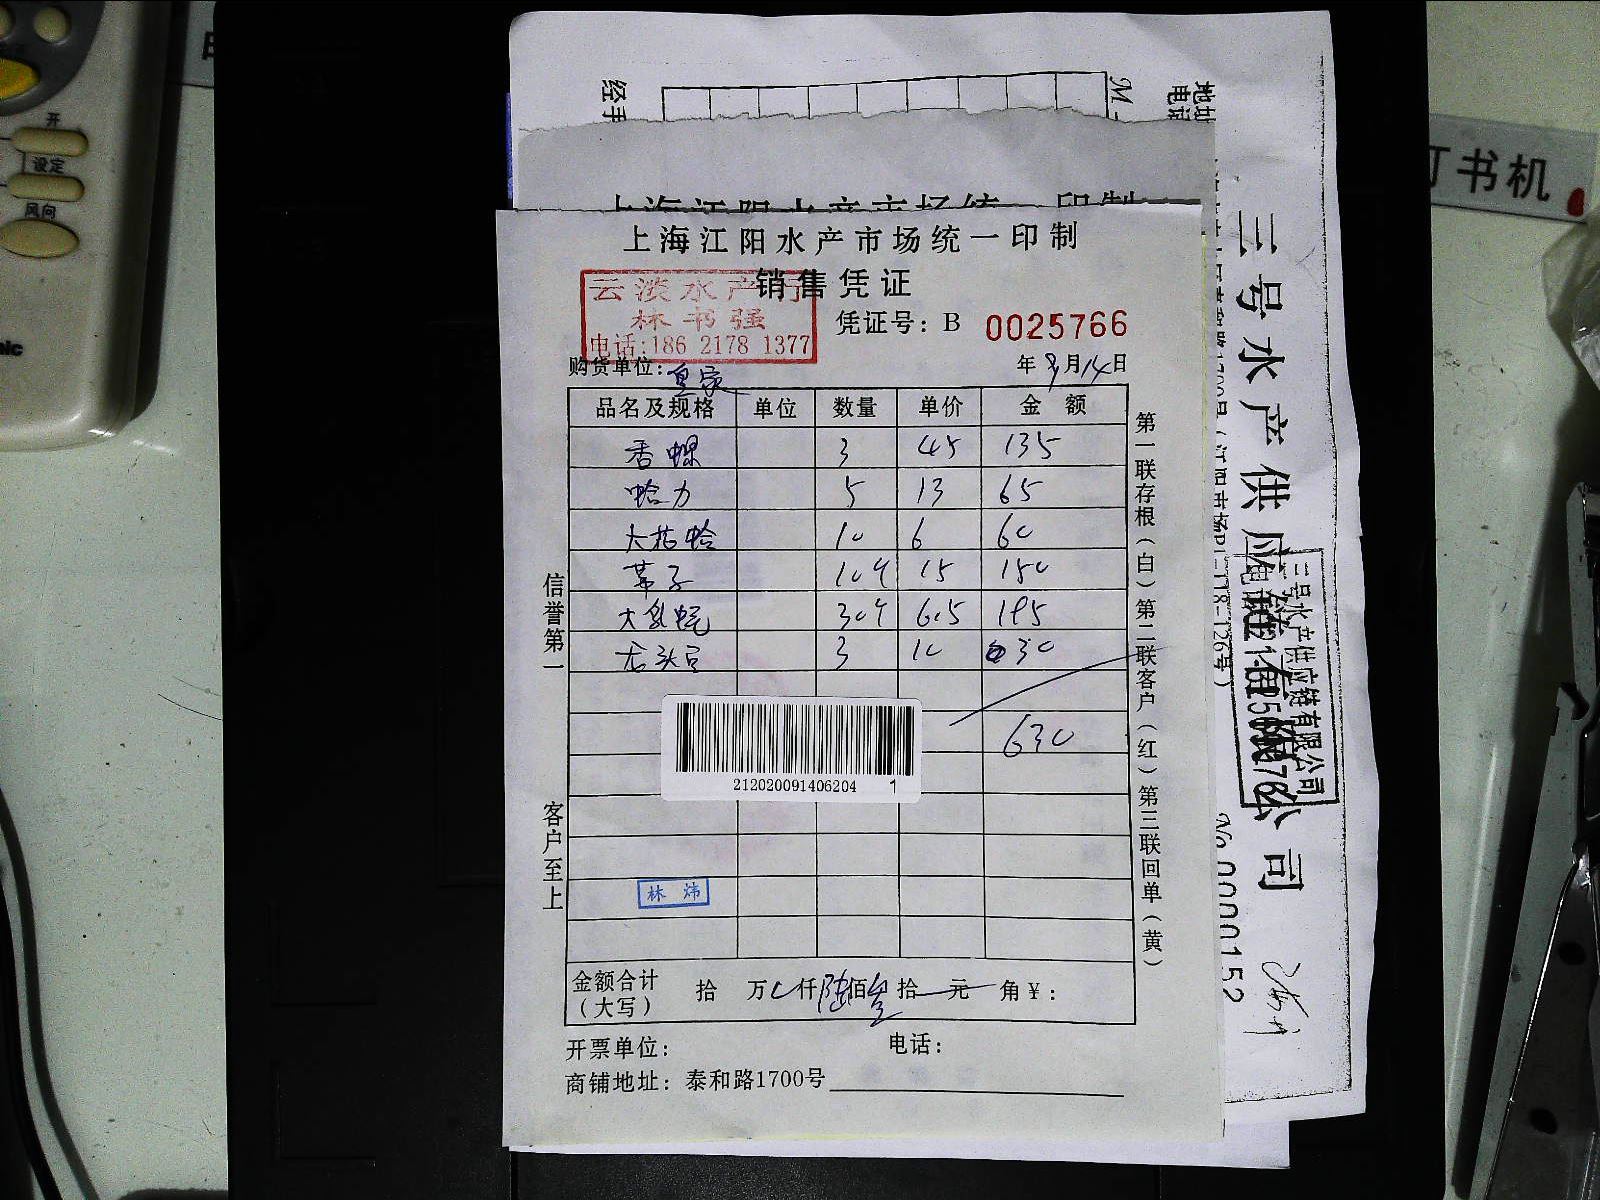 开
设定
风向
订书机
经手
地址
电话
上海江阳水产市场统一印制
上海江阳水产市场统一印制
销售凭证
云淡水产行
林书强
电话:186 2178 1377
凭证号：B 0025766
购货单位：皇家
年 9月14日
品名及规格 单位 数量 单价 金额
香螺 3 45 135
蛤力 5 13 65
大花蛤 10 6 60
10斤 15 150
30斤 6.5 195
3 10 30
630
212020091406204 1
林炜
金额合计（大写） 拾 万 仟 陆佰 拾 元 角 ￥：
开票单位： 电话：
商铺地址：泰和路1700号
信誉第一 客户至上
第一联存根（白）第二联客户（红）第三联回单（黄）
三号水产供应链有限公司
三号水产供应链有限公司
№ 0000152